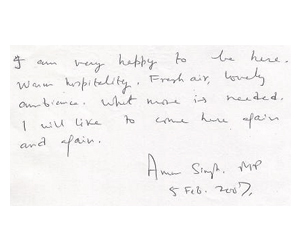 I am very happy to be here.
Warm hospitality. Fresh air, lovely
ambience. What more is needed.
I will like to come here again
and again.
Amar Singh. MP
5 Feb. 2007.